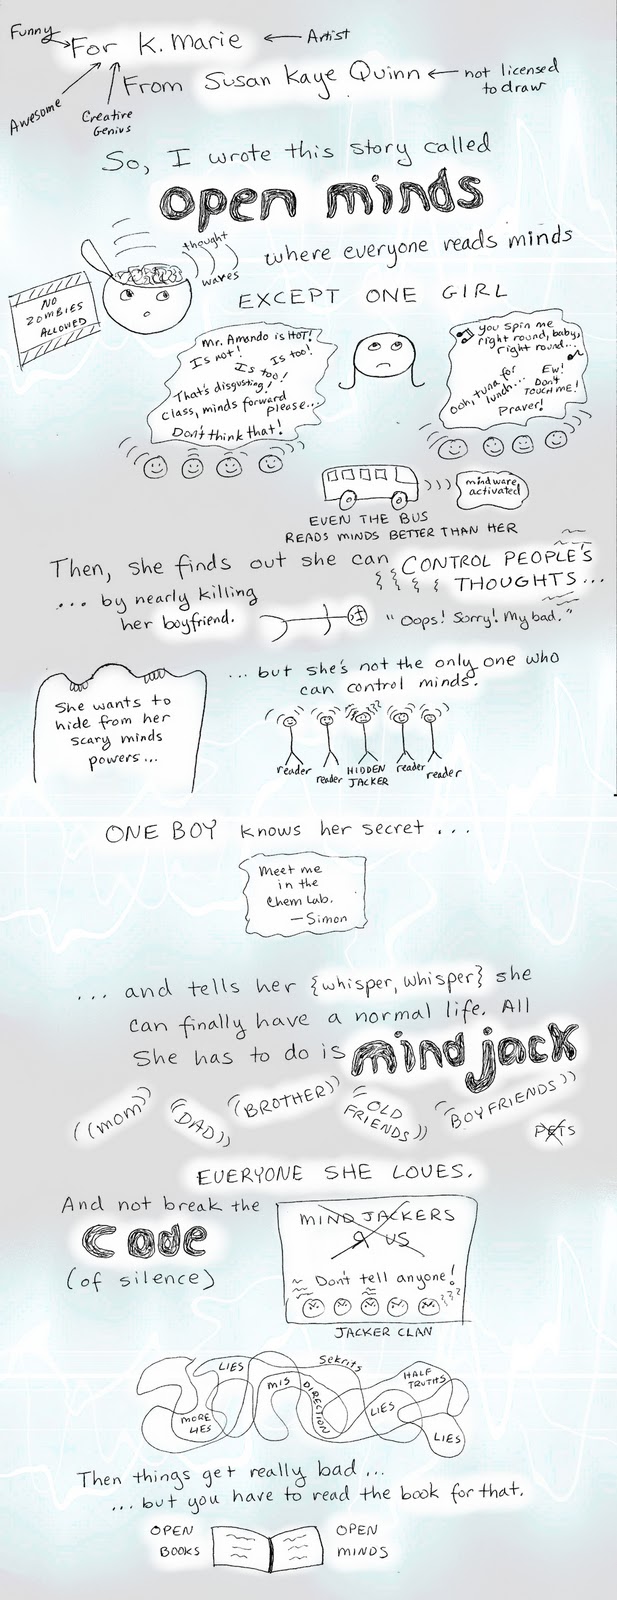 Funny
For K. Marie
Artist
From Susan Kaye Quinn
not licensed
to draw
Awesome
Creative
Genius
So, I wrote this story called
open minds
thought
waves
where everyone reads minds
NO
ZOMBIES
ALLOWED
EXCEPT ONE GIRL
Mr. Amando is HOT!
Is not!
Is too!
Is too!
That's disgusting!
class, minds forward
please...
Don't think that!
you spin me
right round, baby,
right round...
Ooh, tuna for
lunch...
Ew!
Don't
TOUCH ME!
Praver!
mindware
activated
EVEN THE BUS
READS MINDS BETTER THAN HER
Then, she finds out she can CONTROL PEOPLE'S
THOUGHTS...
... by nearly killing
her boyfriend.
"Oops! Sorry! My bad."
... but she's not the only one who
can control minds.
She wants to
hide from her
scary minds
powers...
reader
reader
HIDDEN
JACKER
reader
reader
ONE BOY knows her secret ...
Meet me
in the
Chem Lab.
— Simon
... and tells her {whisper, whisper} she
can finally have a normal life. All
She has to do is mind jack
((mom))
((DAD))
((BROTHER))
((OLD
FRIENDS))
((BOYFRIENDS))
PETS
EVERYONE SHE LOVES.
And not break the
Code
(of silence)
MIND JACKERS
R US
Don't tell anyone!
JACKER CLAN
LIES
Sekrits
MIS
DIRECTION
HALF
TRUTHS
MORE
LIES
LIES
LIES
Then things get really bad ...
... but you have to read the book for that.
OPEN
BOOKS
OPEN
MINDS